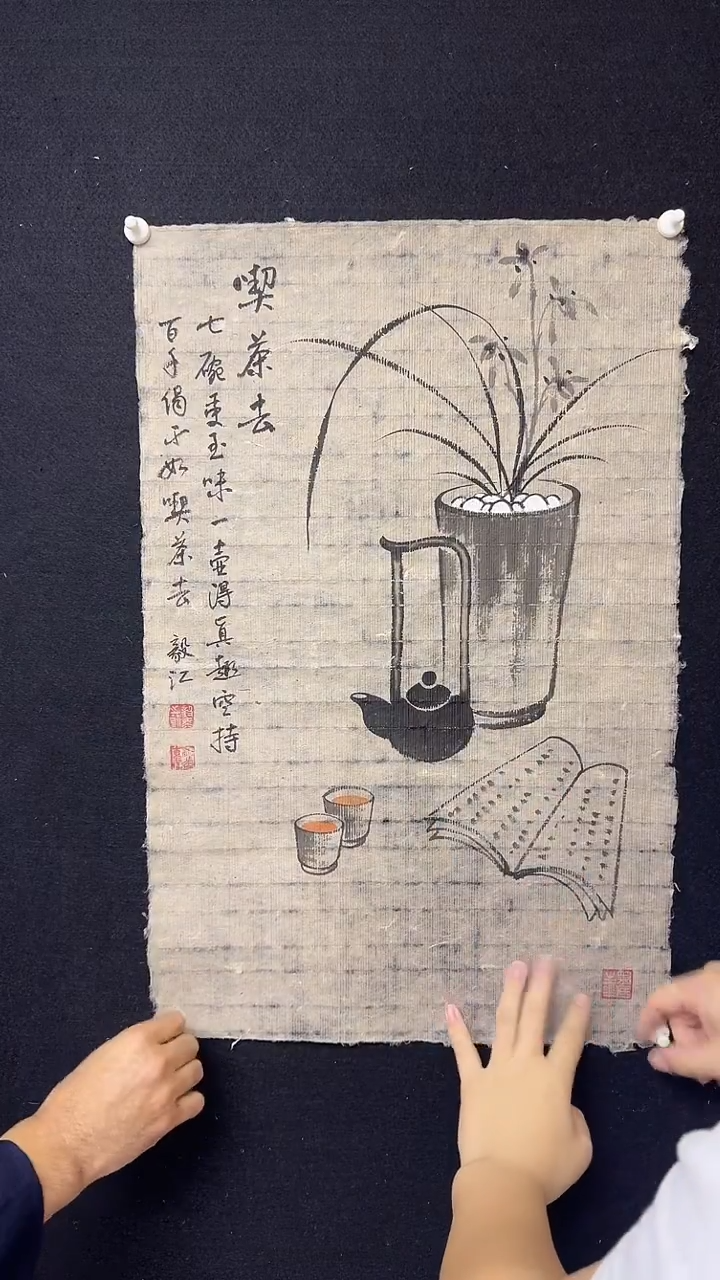 喫茶去
七碗受至味一壺得真趣空持
百千偈不如喫茶去 毅江